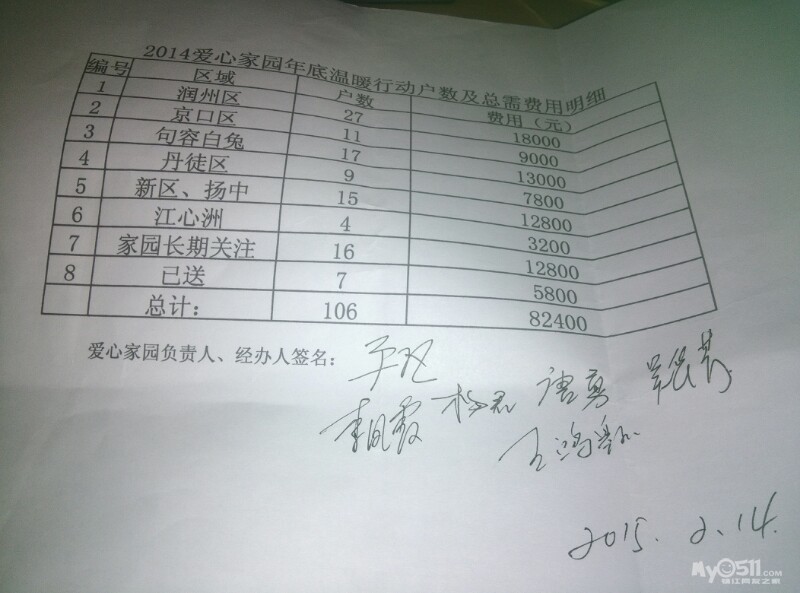 2014爱心家园年底温暖行动户数及总需费用明细
编号 区域 户数 费用（元）
1 润州区 27 18000
2 京口区 11 9000
3 句容白兔 17 13000
4 丹徒区 9 7800
5 新区、扬中 15 12800
6 江心洲 4 3200
7 家园长期关注 16 12800
8 已送 7 5800
总计： 106 82400
爱心家园负责人、经办人签名：
李凤霞 唐勇
2015. 2.14.
My0511.COM
镇江网友之家